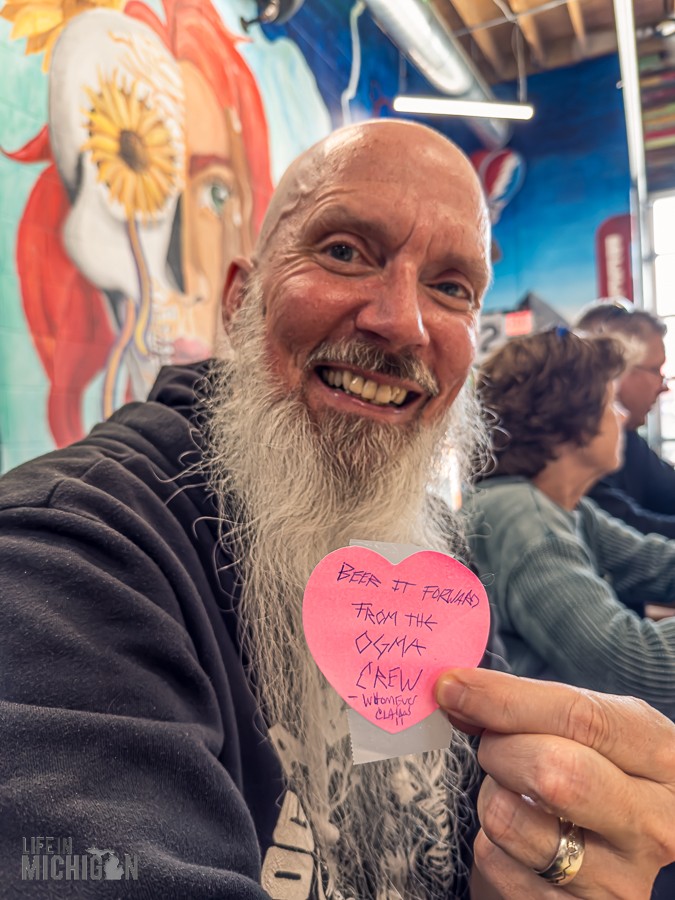 BEER IT FORWARD
FROM THE
OGMA
CREW
- WHOMEVER
CLAIMS
LIFE IN
MICHIGAN